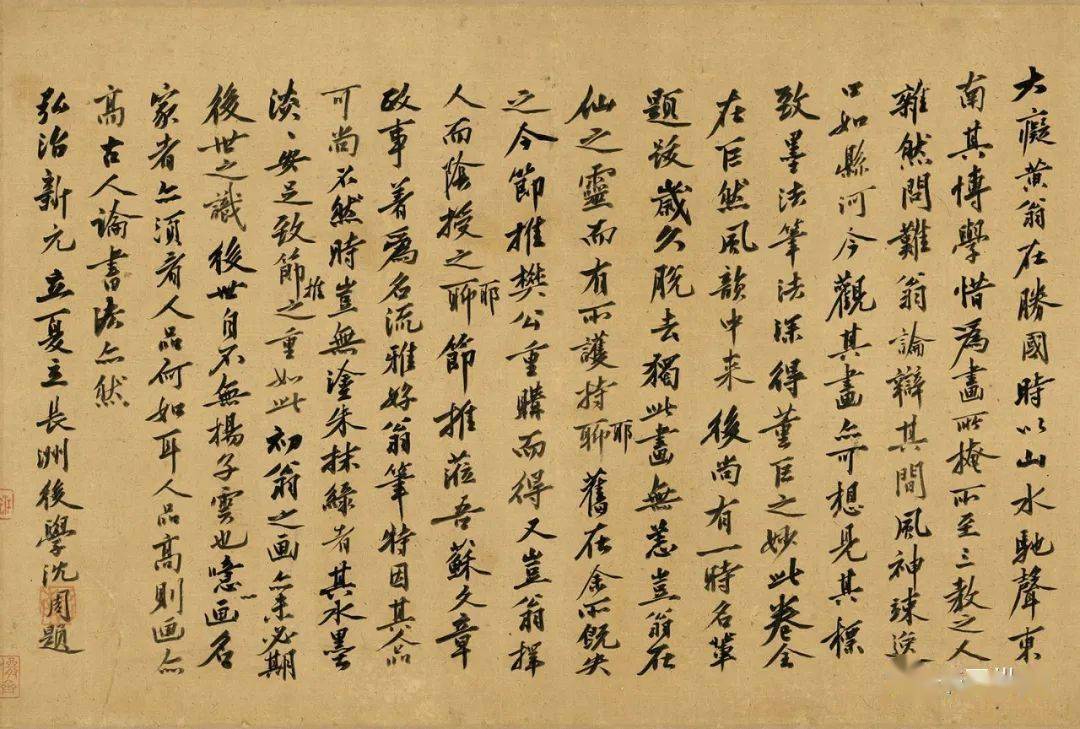 大癡黄翁在勝國時以山水馳聲東
南其博學惜爲畫所掩所至三教之人
雜然問難翁論辯其間風神竦逸
口如縣河今觀其畫亦可想見其標
致墨法筆法深得董巨之妙此卷全
在巨然風韻中来後尚有一時名輩
題跋歲久脱去獨此畫無恙豈翁在
仙之靈而有所護持聊耶舊在余所既失
之今節推樊公重購而得又豈翁擇
人而陰授之聊耶節推蒞吾蘇文章
政事著爲名流雅好翁筆特因其人品
可尚不然時豈無塗朱抹緑者其水墨
淡、安足致節推之重如此初翁之画亦未必期
後世之識後世自不無揚子雲也噫画名
家者亦須看人品何如耳人品高則画亦
高古人論書法亦然
弘治新元立夏立長洲後學沈周題